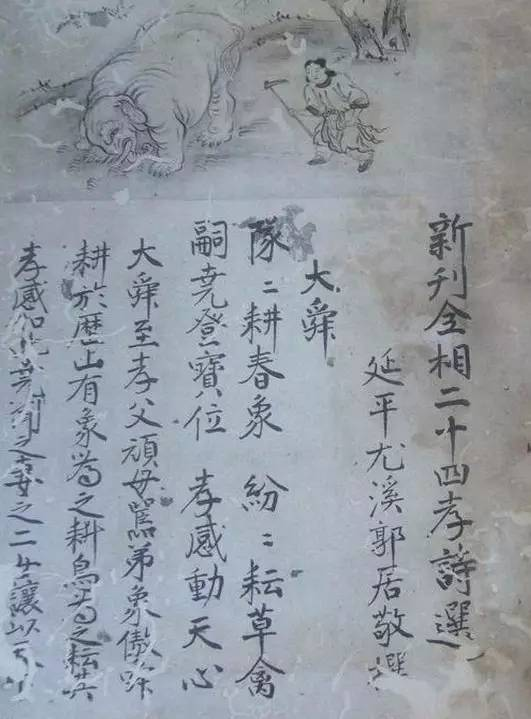 新刋全相二十四孝詩選
延平尤溪郭居敬撰
大舜
隊〻耕春象 紛〻耘草禽
嗣尭登寳位 孝感動天心
大舜至孝父頑母嚚弟象傲
耕於歷山有象為之耕鳥為之耘其
孝感如此尭聞之妻之二女讓以天下